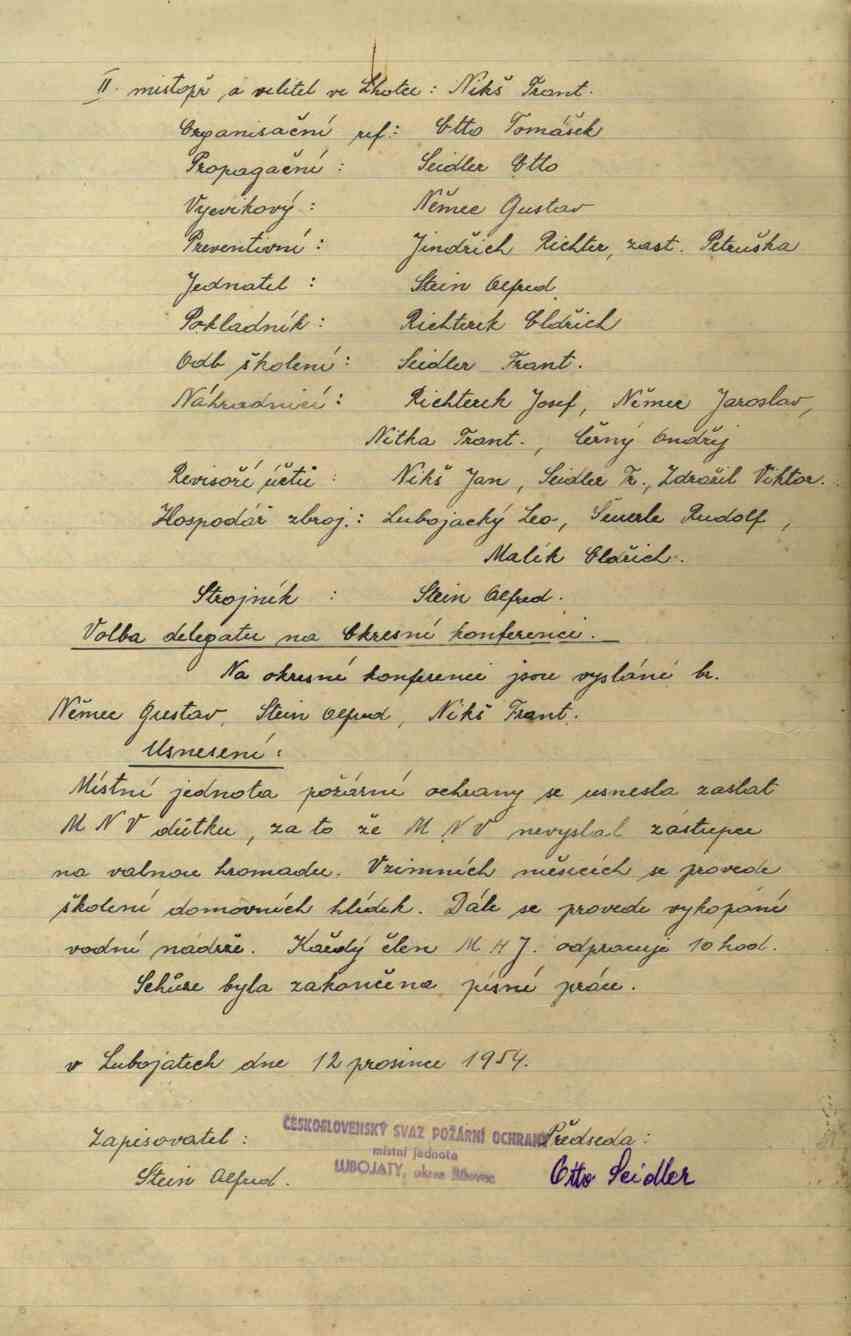 II. mistopř a velitel ve Lhotce: Nikš Frant.
Organisační ref: Otto Tomášek
Propagační: Seidler Otto
Vycvikový: Němec Gustav
Preventivní: Jindřich Richter, zast. Petruška
Jednatel: Stein Alfred
Pokladník: Richterek Oldřich
Odb školení: Seidler Frant.
Náhradníci: Richterek Josef, Němec Jaroslav,
Nitka Frant., Černý Ondřej
Revisoří účtů: Nikš Jan, Seidler Fr., Zdražil Viktor.
Hospodář zbroj.: Lubojacký Leo, Šeuerle Rudolf,
Malík Oldřich.
Strojník: Stein Alfred.
Volba delegatu na Okresní konferenci.
Na okresní konferenci jsou vysláni br.
Němec Gustav, Stein Alfred, Nikš Frant.
Usnesení:
Místní jednota požární ochrany se usnesla zaslat
M N V důtku, za to že M N V nevyslal zástupce
na valnou hromadu. V zimních měsících se provede
školení domovních hlídek. Dále se provede vykopání
vodní nádrže. Každý člen M H J. odpracuje 10 hod.
Schůze byla zakončena písní práce.
v Lubojatech dne 12 prosince 1954.
Zapisovatel: Předseda:
Stein Alfred. Otto Seidler
ČESKOSLOVENSKÝ SVAZ POŽÁRNÍ OCHRANY
místní jednota
LUBOJATY, okres Bílovec